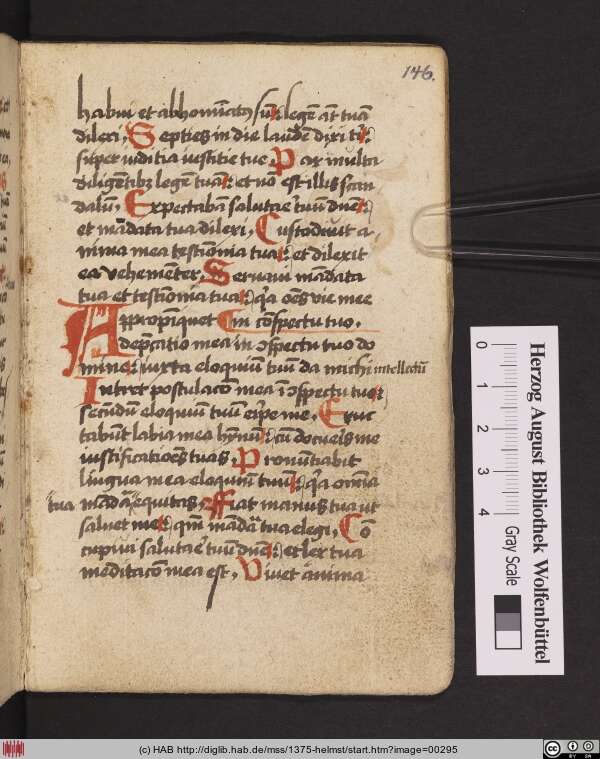 146.
habui et abhomīatꝰ sū: legē aūt tuā
dilexi. Septies in die laudē dixi ti:
super iuditia iustitie tue. Pax multa
diligētibꝫ legē tuā: et nō est illis scan
dalū. Expectabā salutare tuū dn̄e:
et mādata tua dilexi. Custodiuit a
nima mea testīonia tua: et dilexit
ea vehemēter. Seruaui mādata
tua et testīonia tua: qr̄a oēs vie mee
Appropīquet in cōspectu tuo.
depcatio mea in ɔspectu tuo do
mine: iuxta eloquiū tuū da michi intellectū
Intret postulacō mea ī ɔspectu tuo:
secūdū eloquiū tuū eripe me. Eruc
tabūt labia mea hȳnū: cū docueris me
iustificatiōes tuas. Pronūtiabit
līngua mea eloquiū tuū: qr̄a omīa
tua mādata equitas. Fiat manus tua ut
saluet me: qm̄ mādata tua elegi. Cō
cupiui salutare tuū dn̄e: et lex tua
meditacō mea est. Viuet anima
0
1
2
3
4
Herzog August Bibliothek Wolfenbüttel
Gray Scale
(c) HAB http://diglib.hab.de/mss/1375-helmst/start.htm?image=00295